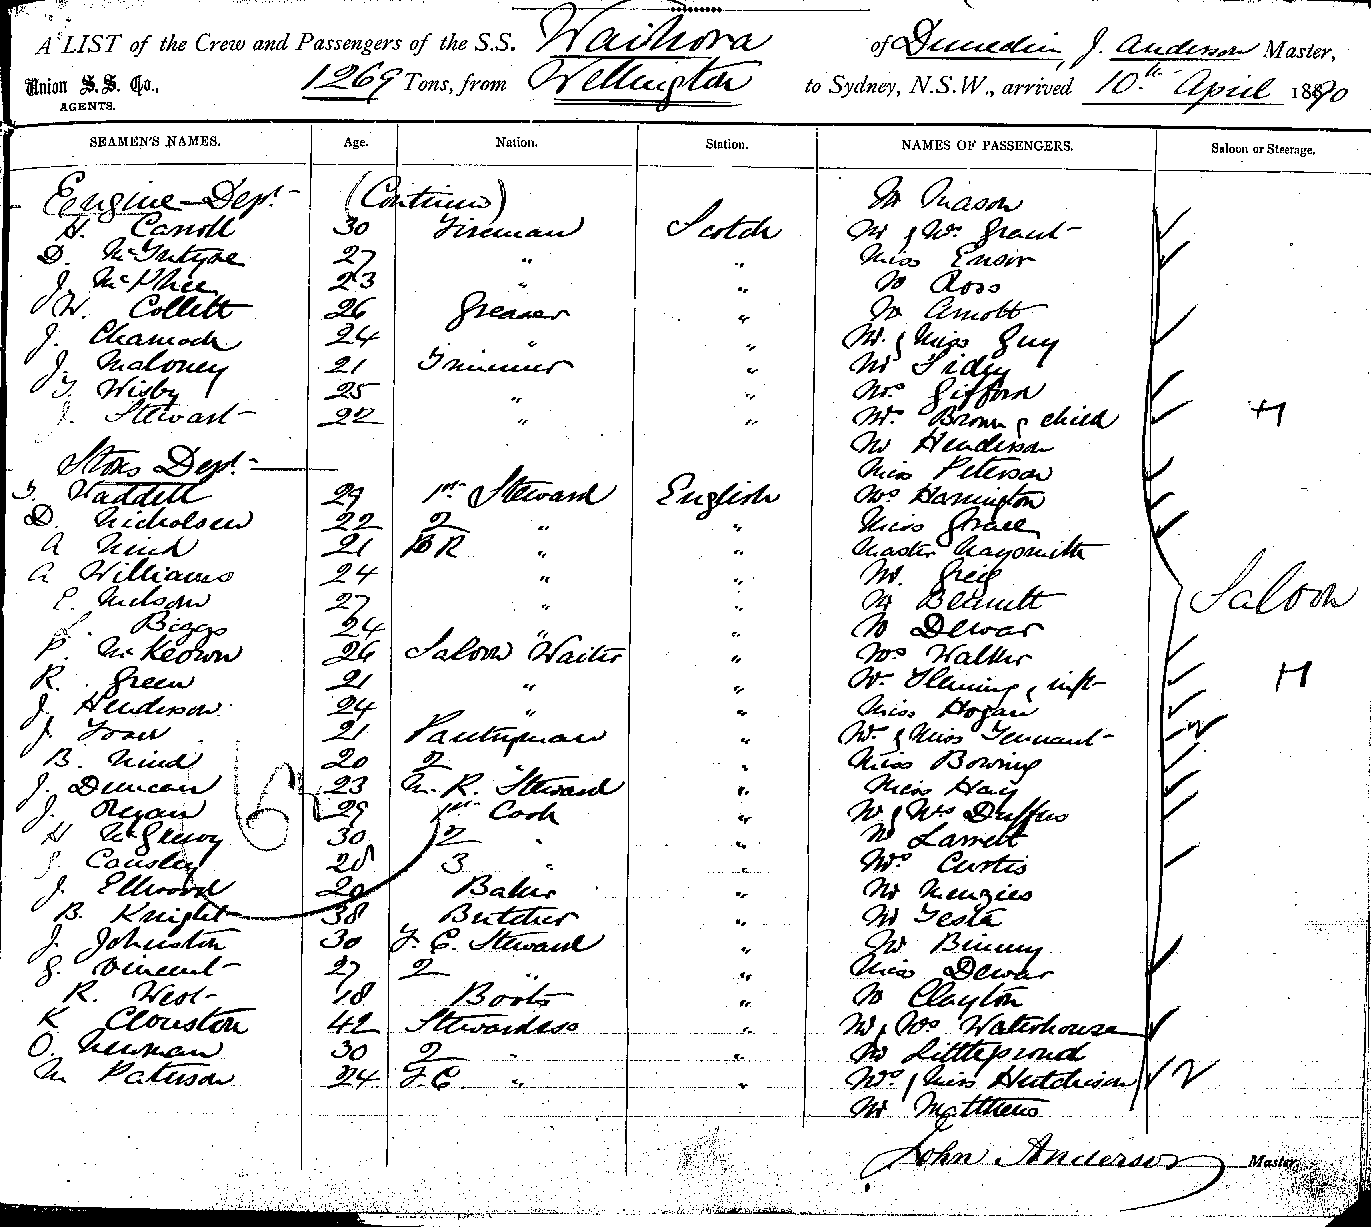 A LIST of the Crew and Passengers of the S.S. Waihora of Dunedin, J. Anderson Master,
Union S. S. Co., AGENTS. 1269 Tons, from Wellington to Sydney, N.S.W., arrived 10th April 1890
SEAMEN'S NAMES. Age. Nation. Station. NAMES OF PASSENGERS. Saloon or Steerage.
Engine Dept (Continued) Mr Mason
H. Carroll 30 Fireman Scotch Mr & Mrs Grant
D. McIntyre 27 " " Miss Ensor
J. McPhee 23 " " Mr Ross
W. Collett 26 Greaser " Mr Arnott
J. Charnock 24 " " Mr & Miss Guy
J. Maloney 21 Trimmer " Mr Tidey
T. Wisby 25 " " Mrs Gifford
J. Stewart 22 " " Mrs Brown & child H
Mr Henderson
Stors Dept Miss Peterson
T. Waddell 29 1st Steward English Mrs Harrington
D. Nicholson 22 2 " " Miss Grace
A Nind 21 B R " " Master Naysmith
A Williams 24 " " Mr. Greig
E. Nelson 27 " " Mr Bennett Saloon
L. Biggs 24 " " Mr Dewar
P. McKeown 26 Saloon Waiter " Mrs Walker
R. Green 21 " " Mrs Fleming & inft H
J. Henderson 24 " " Miss Hogan
J. 21 Pantryman " Mr & Miss Tennant 2
B. Nind 20 2 " Miss Bowring
J. Duncan 23 M. R. Steward " Miss Hay
J. Regan 29 1st Cook " Mr & Mrs Duffus
H McGreevy 30 2 " " Mr Larrett
G. Causley 28 3 " " Mrs Curtis
J. Ellwood 20 Baker " Mr Menzies
B. Knight 38 Butcher " Mr Testa
J. Johnston 30 F. C. Steward " Mr Binney
G. Vincent 27 2 " " Miss Dewar
R. West 18 Boots " Mr Clayton
K Clouston 42 Stewardess " Mr & Mrs Waterhouse
O. Newman 30 2 " " Mr Littleproud
M Paterson 24 F. C. " " Mrs & Miss Hutchison 2
Mr Matthews
John Anderson Master.